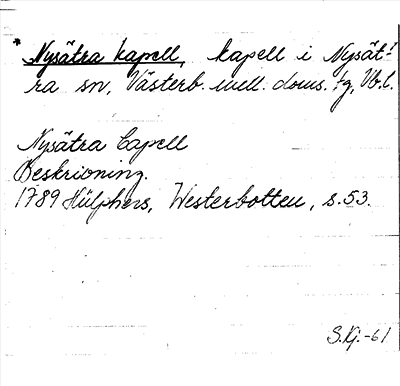 * Nysätra kapell, kapell i Nysät-
ra sn, Västerb. mell. doms. tg, Vb. l.
Nysätra Capell
Beskrivning.
1789 Hülphers, Westerbotten, s. 53.
S.Kj.-61